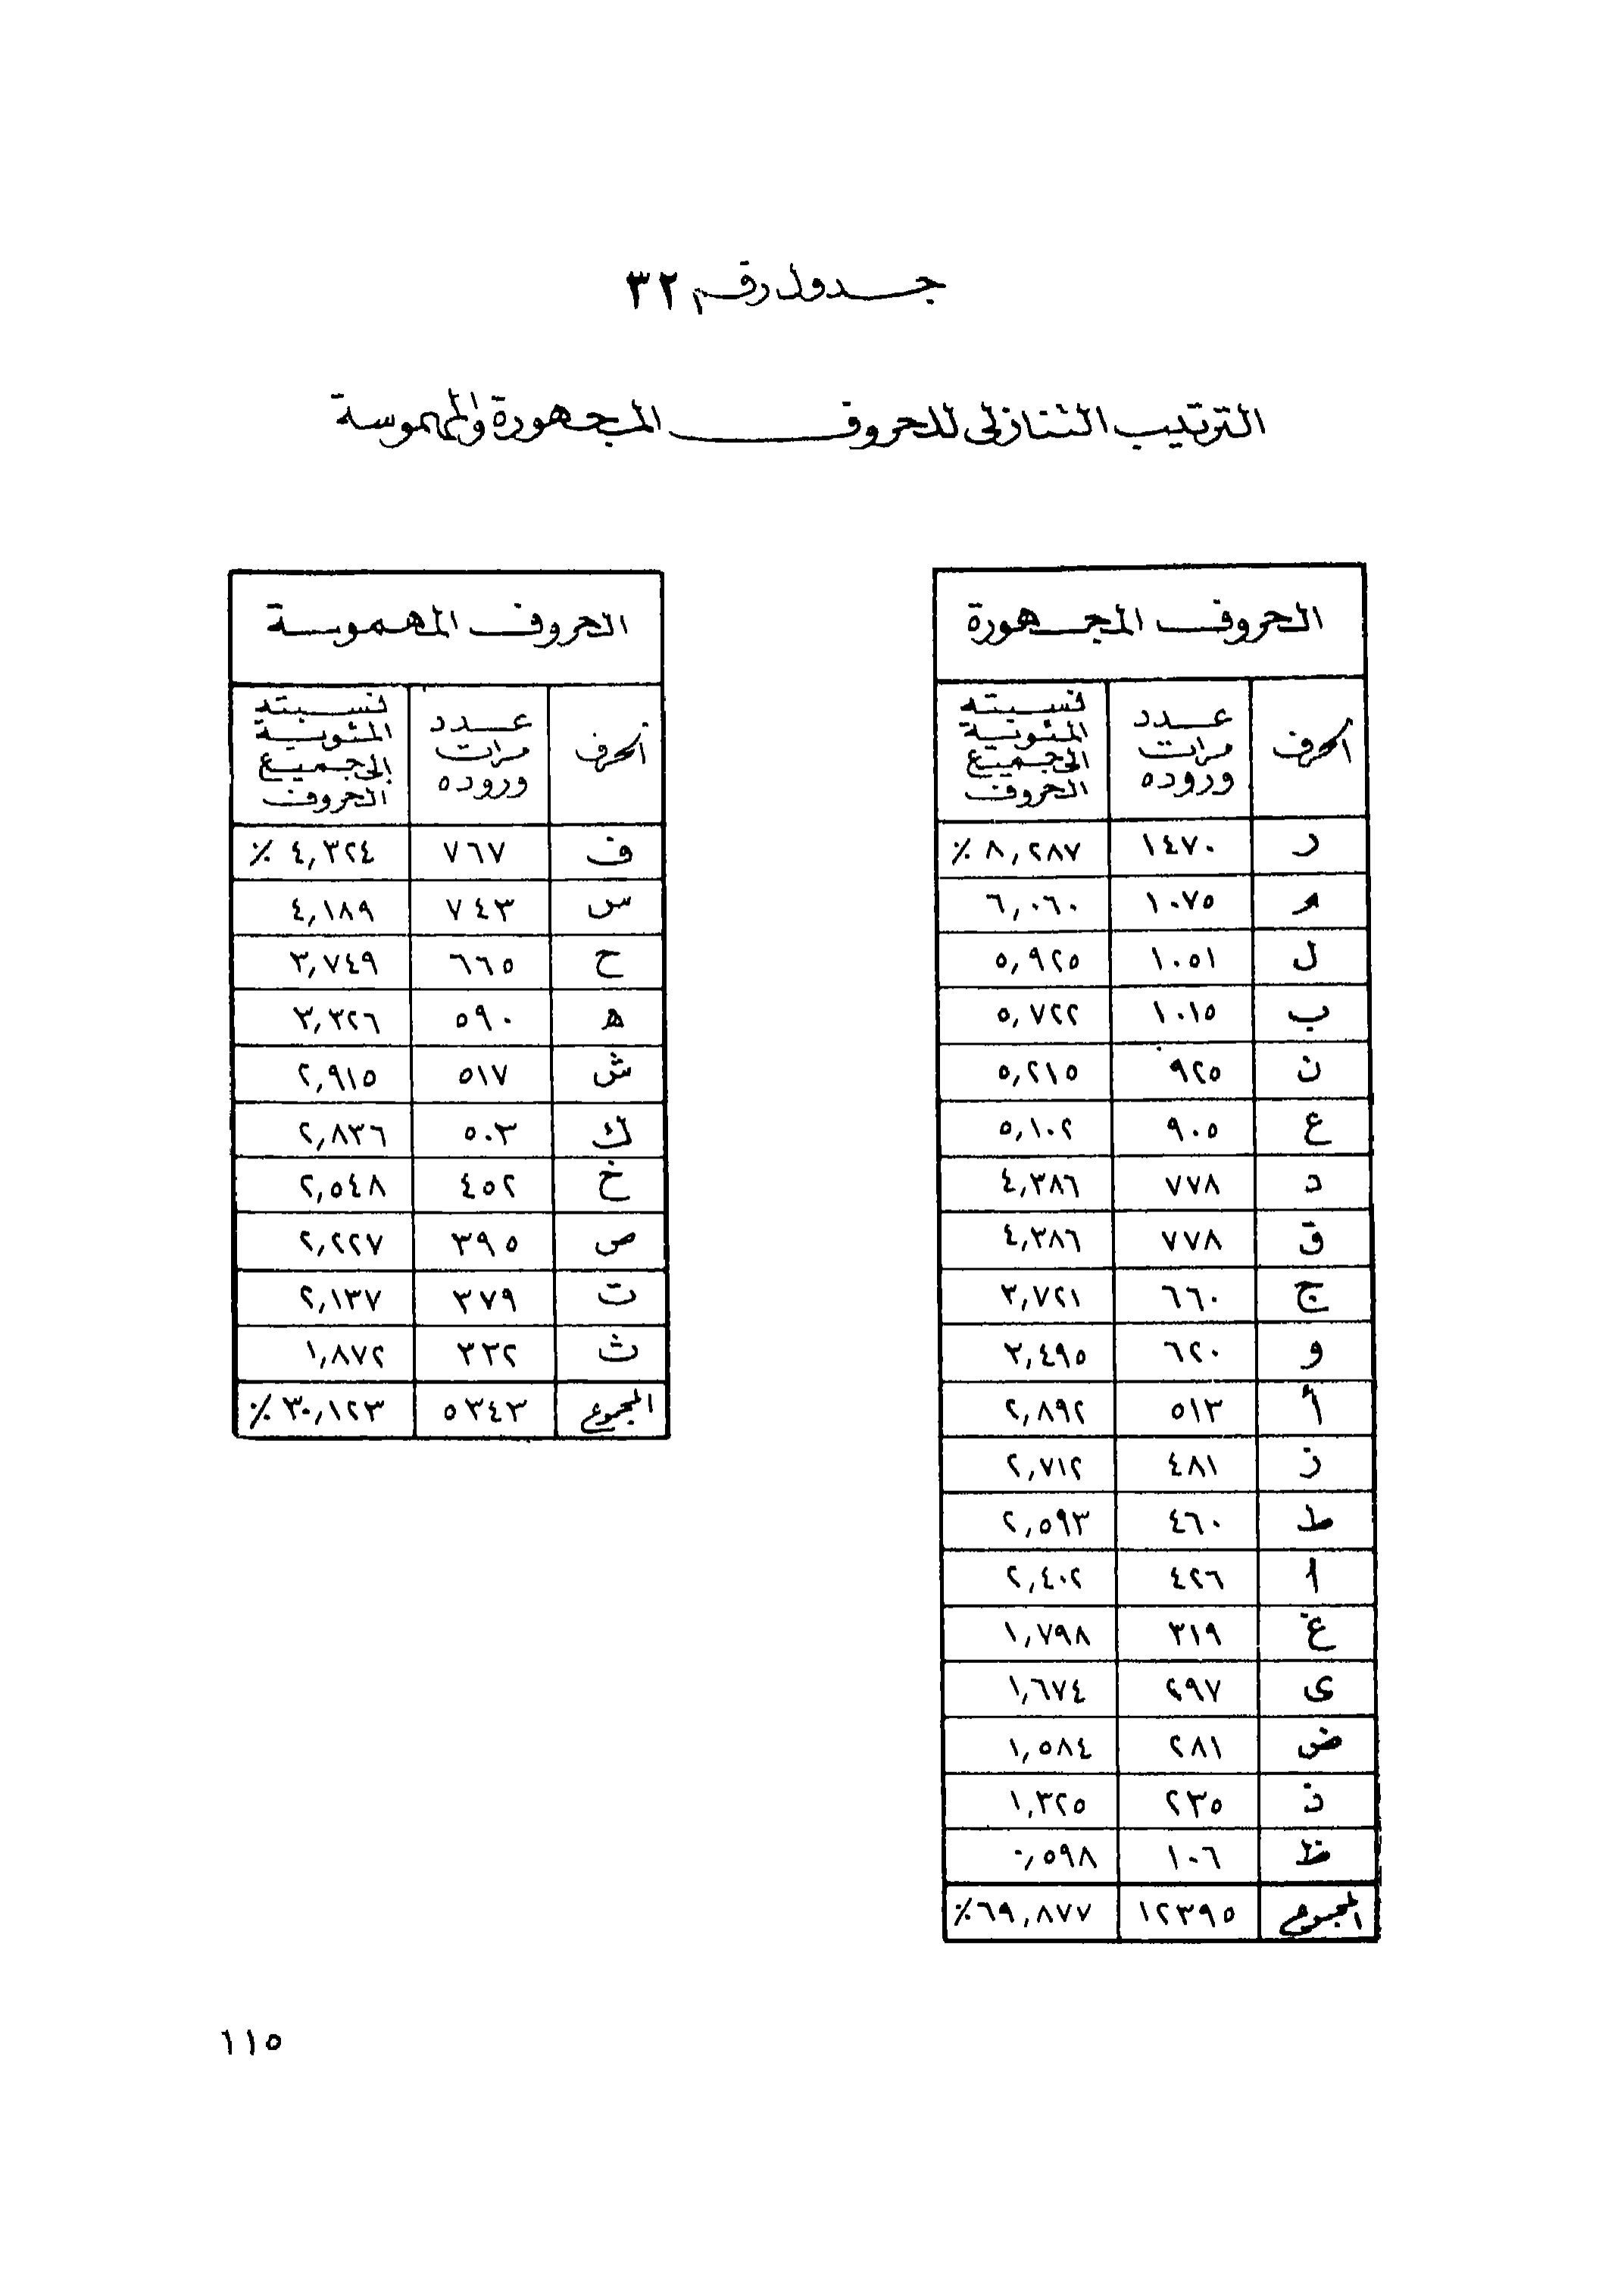 جدول رقم ٣٢
الترتيب التنازلى للحروف المجهورة والمهموسة
الحروف المجهورة
الحرف
عدد
مرات
وروده
نسبته
المئوية
الى جميع
الحروف
ر ١٤٧٠ ٨,٢٨٧ ٪
م ١٠٧٥ ٦,٠٦٠
ل ١٠٥١ ٥,٩٢٥
ب ١٠١٥ ٥,٧٢٢
ن ٩٢٥ ٥,٢١٥
ع ٩٠٥ ٥,١٠٢
د ٧٧٨ ٤,٣٨٦
ق ٧٧٨ ٤,٣٨٦
ج ٦٦٠ ٣,٧٢١
و ٦٢٠ ٣,٤٩٥
أ ٥١٣ ٢,٨٩٢
ز ٤٨١ ٢,٧١٢
ط ٤٦٠ ٢,٥٩٣
ا ٤٢٦ ٢,٤٠٢
غ ٣١٩ ١,٧٩٨
ى ٢٩٧ ١,٦٧٤
ض ٢٨١ ١,٥٨٤
ذ ٢٣٥ ١,٣٢٥
ظ ١٠٦ ٠,٥٩٨
المجموع ١٢٣٩٥ ٦٩,٨٧٧ ٪
الحروف المهموسة
الحرف
عدد
مرات
وروده
نسبته
المئوية
إلى جميع
الحروف
ف ٧٦٧ ٤,٣٢٤ ٪
س ٧٤٣ ٤,١٨٩
ح ٦٦٥ ٣,٧٤٩
ه ٥٩٠ ٣,٣٢٦
ش ٥١٧ ٢,٩١٥
ك ٥٠٣ ٢,٨٣٦
خ ٤٥٢ ٢,٥٤٨
ص ٣٩٥ ٢,٢٢٧
ت ٣٧٩ ٢,١٣٧
ث ٣٣٢ ١,٨٧٢
المجموع ٥٣٤٣ ٣٠,١٢٣ ٪
١١٥